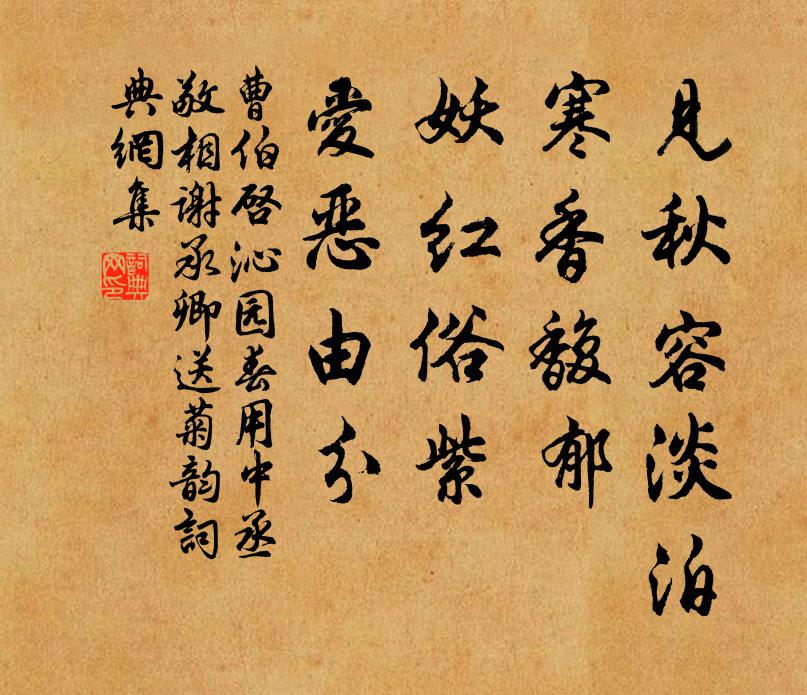 見秋容淡泊
寒香馥郁
妖红俗紫
愛惡由分
曹伯啓沁园春用中丞
敬相谢承卿送菊韵詞
典網集
詞典
网印